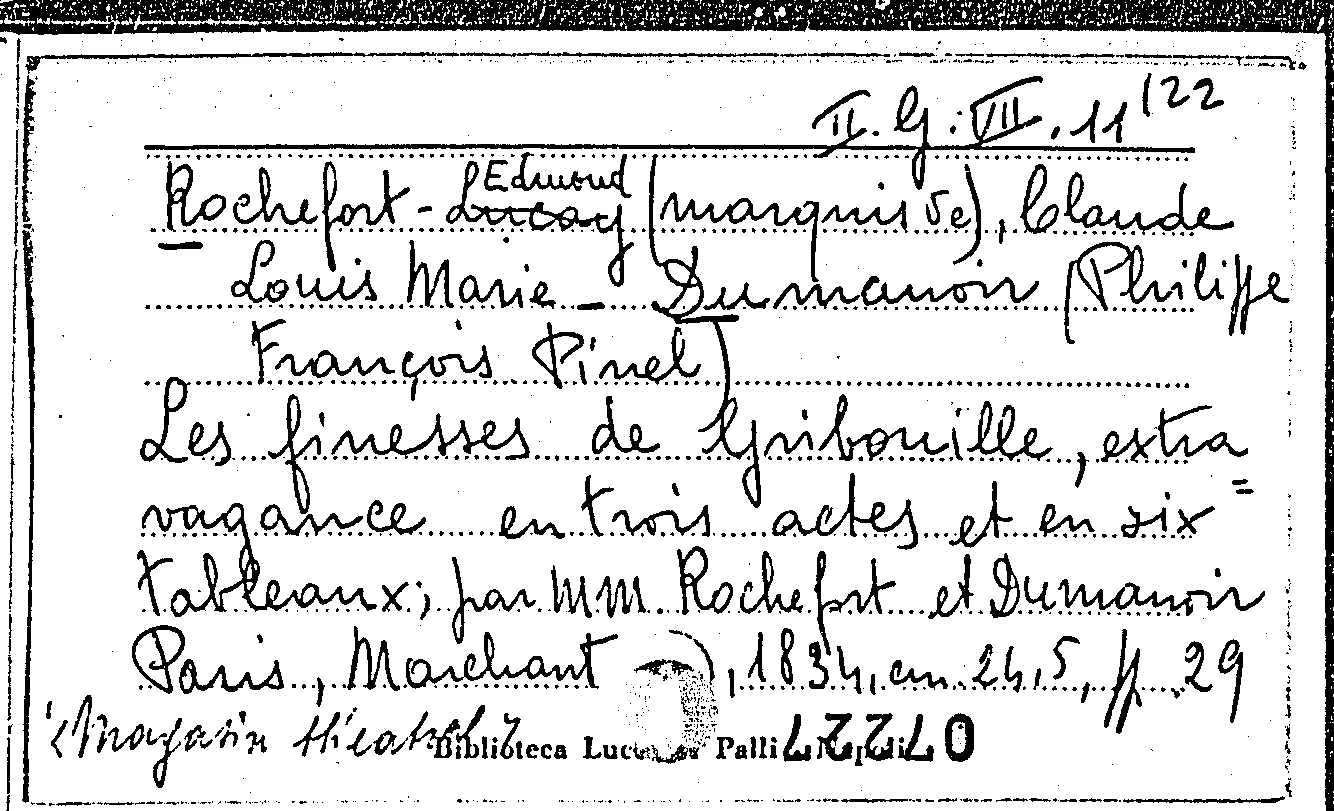 II. G. VII. 11/22
Rochefort - Lucay Edmond (marquis de), Claude
Louis Marie - Dumanoir (Philippe
François Pinel)
Les finesses de Gribouille, extra
vagance en trois actes et en six
tableaux; par MM. Rochefort et Dumanoir
Paris, Marchant, 1834, cm. 24,5, pp. 29
Magasin théatral
Biblioteca Lucchesi Palli Napoli